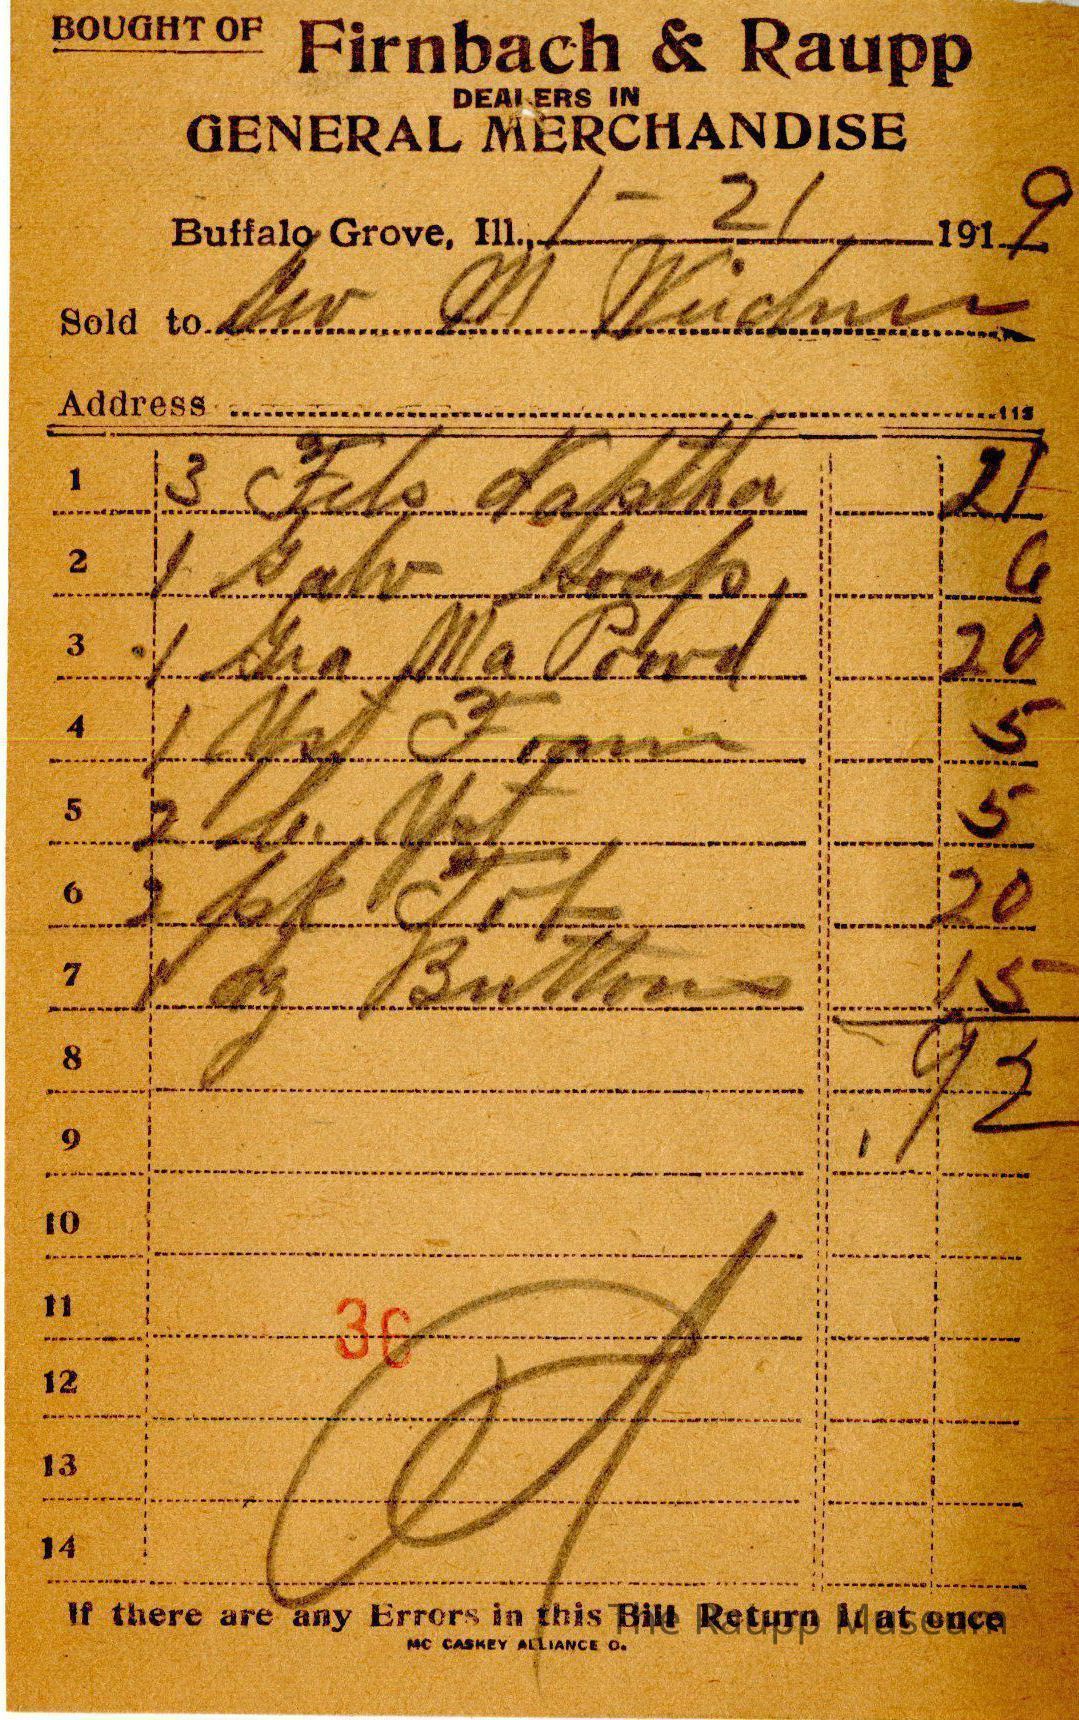 BOUGHT OF Firnbach & Raupp
DEALERS IN
GENERAL MERCHANDISE
Buffalo Grove, Ill., 1-21 1919
Sold to M Weidner
Address
1 3 Fels Naptha 21
2 1 Galv Soap 6
3 1 Gra Ma Powd 20
4 1 Yst Foam 5
5 2 Yst 5
6 2 pk Tob 20
7 1 dz Buttons 15
8 92
9
10
11
36
12
13
14
If there are any Errors in this Bill Return it at once
The Raupp Museum
MC CASKEY ALLIANCE O.